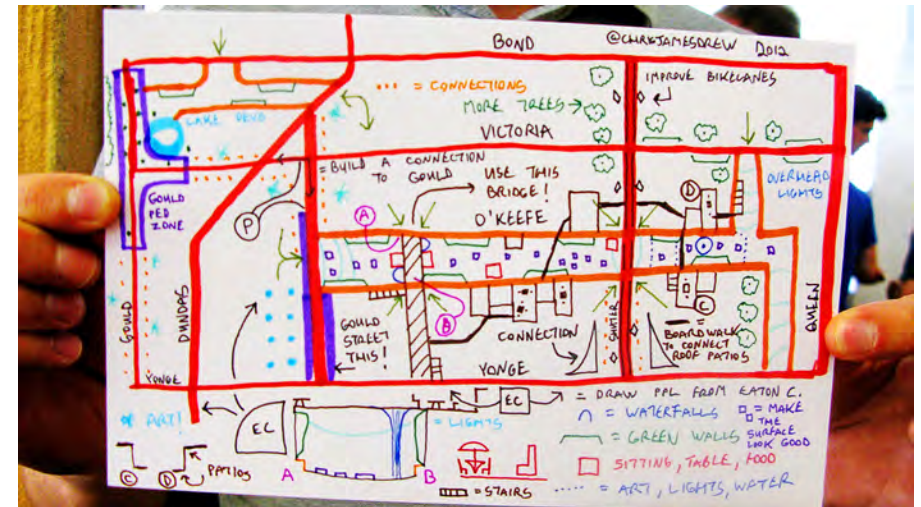 BOND
@CHRISJAMESDREW 2012
= CONNECTIONS
IMPROVE BIKELANES
MORE TREES
VICTORIA
LAKE DEVO
= BUILD A CONNECTION
TO GOULD
USE THIS
BRIDGE!
O'KEEFE
OVERHEAD
LIGHTS
GOULD
PED
ZONE
P
A
D
GOULD
DUNDAS
GOULD
STREET
THIS!
B
CONNECTION
SHUTER
C
=
BOARDWALK
TO CONNECT
ROOF PATIOS
QUEEN
YONGE
YONGE
ART!
EC
EC
= DRAW PPL FROM EATON C.
= LIGHTS
= WATERFALLS
= MAKE
THE
SURFACE
LOOK GOOD
= GREEN WALLS
C
D
PATIOS
A
B
SITTING, TABLE, FOOD
= STAIRS
= ART, LIGHTS, WATER